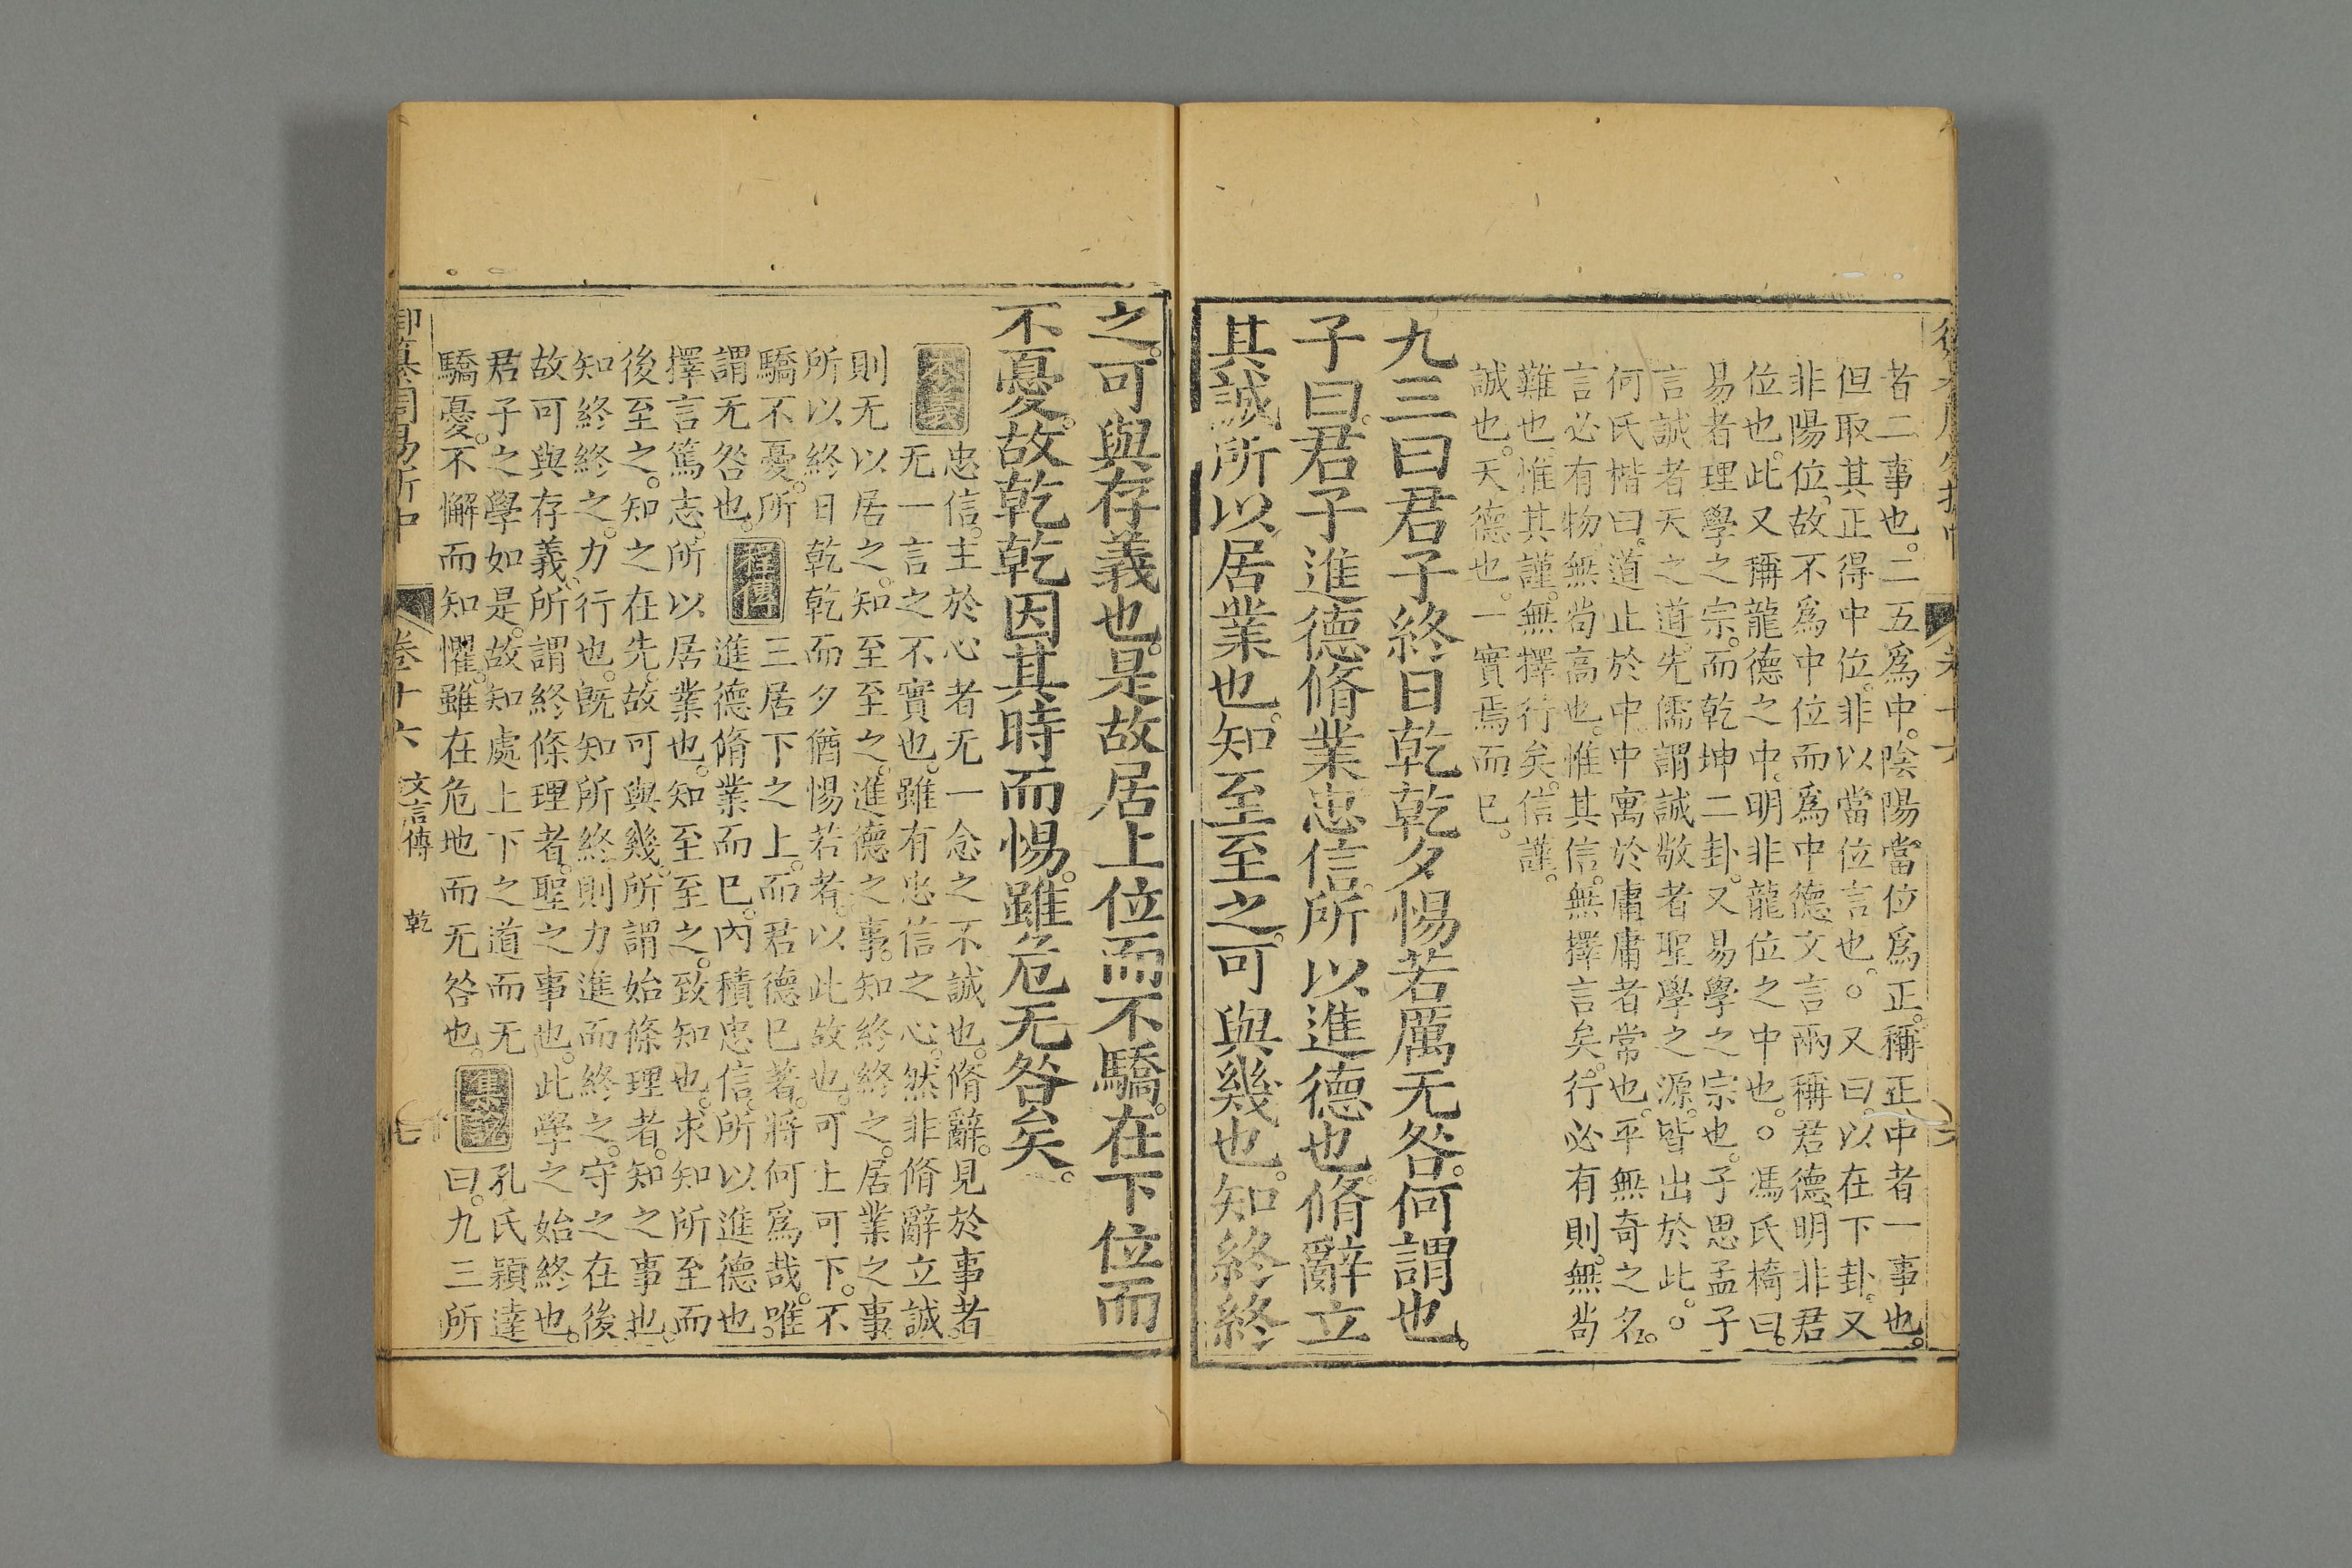 者二事也。二五爲中。陰陽當位爲正。稱正中者一事也。
但取其正得中位。非以當位言也。○又曰。以在下卦。又
非陽位。故不爲中位而爲中德。文言兩稱君德。明非君
位也。此又稱龍德之中。明非龍位之中也。○馮氏椅曰。
易者理學之宗。而乾坤二卦。又易學之宗也。子思孟子
言誠者天之道。先儒謂誠敬者聖學之源。皆出於此。○
何氏楷曰。道止於中。中寓於庸。庸者常也。平無奇之名。
言必有物。無尚高也。惟其信。無擇言矣。行必有則。無尚
難也。惟其謹。無擇行矣。信謹。
誠也。天德也。一實焉而已。
九三曰君子終日乾乾夕惕若厲无咎。何謂也。
子曰。君子進德脩業。忠信。所以進德也。脩辭立
其誠。所以居業也。知至至之。可與幾也。知終終
之。可與存義也。是故居上位而不驕。在下位而
不憂。故乾乾因其時而惕。雖危无咎矣。
本義 忠信。主於心者无一念之不誠也。脩辭。見於事者
无一言之不實也。雖有忠信之心。然非脩辭立誠。
則无以居之。知至至之。進德之事。知終終之。居業之事。
所以終日乾乾而夕猶惕若者。以此故也。可上可下。不
驕不憂。所
謂无咎也。 程傳 三居下之上。而君德已著。將何爲哉。唯
進德脩業而已。內積忠信。所以進德也。
擇言篤志。所以居業也。知至至之。致知也。求知所至而
後至之。知之在先。故可與幾。所謂始條理者。知之事也。
知終終之。力行也。旣知所終。則力進而終之。守之在後。
故可與存義。所謂終條理者。聖之事也。此學之始終也。
君子之學如是。故知處上下之道而无
驕憂。不懈而知懼。雖在危地而无咎也。 集說 孔氏穎達
曰。九三所
御纂周易折中 卷十六 文言傳 乾 七